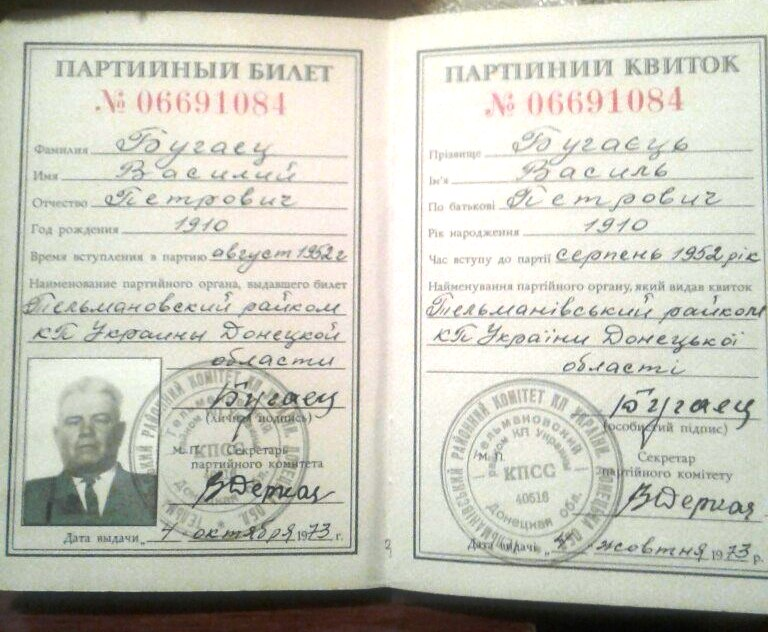 ПАРТИЙНЫЙ БИЛЕТ
№ 06691084
Фамилия Бугаец
Имя Василий
Отчество Петрович
Год рождения 1910
Время вступления в партию август 1952 г
Наименование партийного органа, выдавшего билет
Тельмановский райком
КП Украины Донецкой
области
Бугаец
(личная подпись)
М. П. Секретарь
партийного комитета
ВДеркач
Дата выдачи „4 октября 1973 г.
КПСС
ПАРТІЙНИЙ КВИТОК
№ 06691084
Прізвище Бугаєць
Ім'я Василь
По батькові Петрович
Рік народження 1910
Час вступу до партії серпень 1952 рік
Найменування партійного органу, який видав квиток
Тельманівський райком
КП України Донецької
області
Бугаец
(особистий підпис)
М. П. Секретар
партійного комітету
ВДеркач
Дата видачі „4 жовтня 1973 р.
ТЕЛЬМАНІВСЬКИЙ РАЙОННИЙ КОМІТЕТ КП УКРАЇНИ. ДОНЕЦЬКА ОБЛ.
Тельмановский
райком КП Украины
КПСС
40516
Донецкая обл.
3